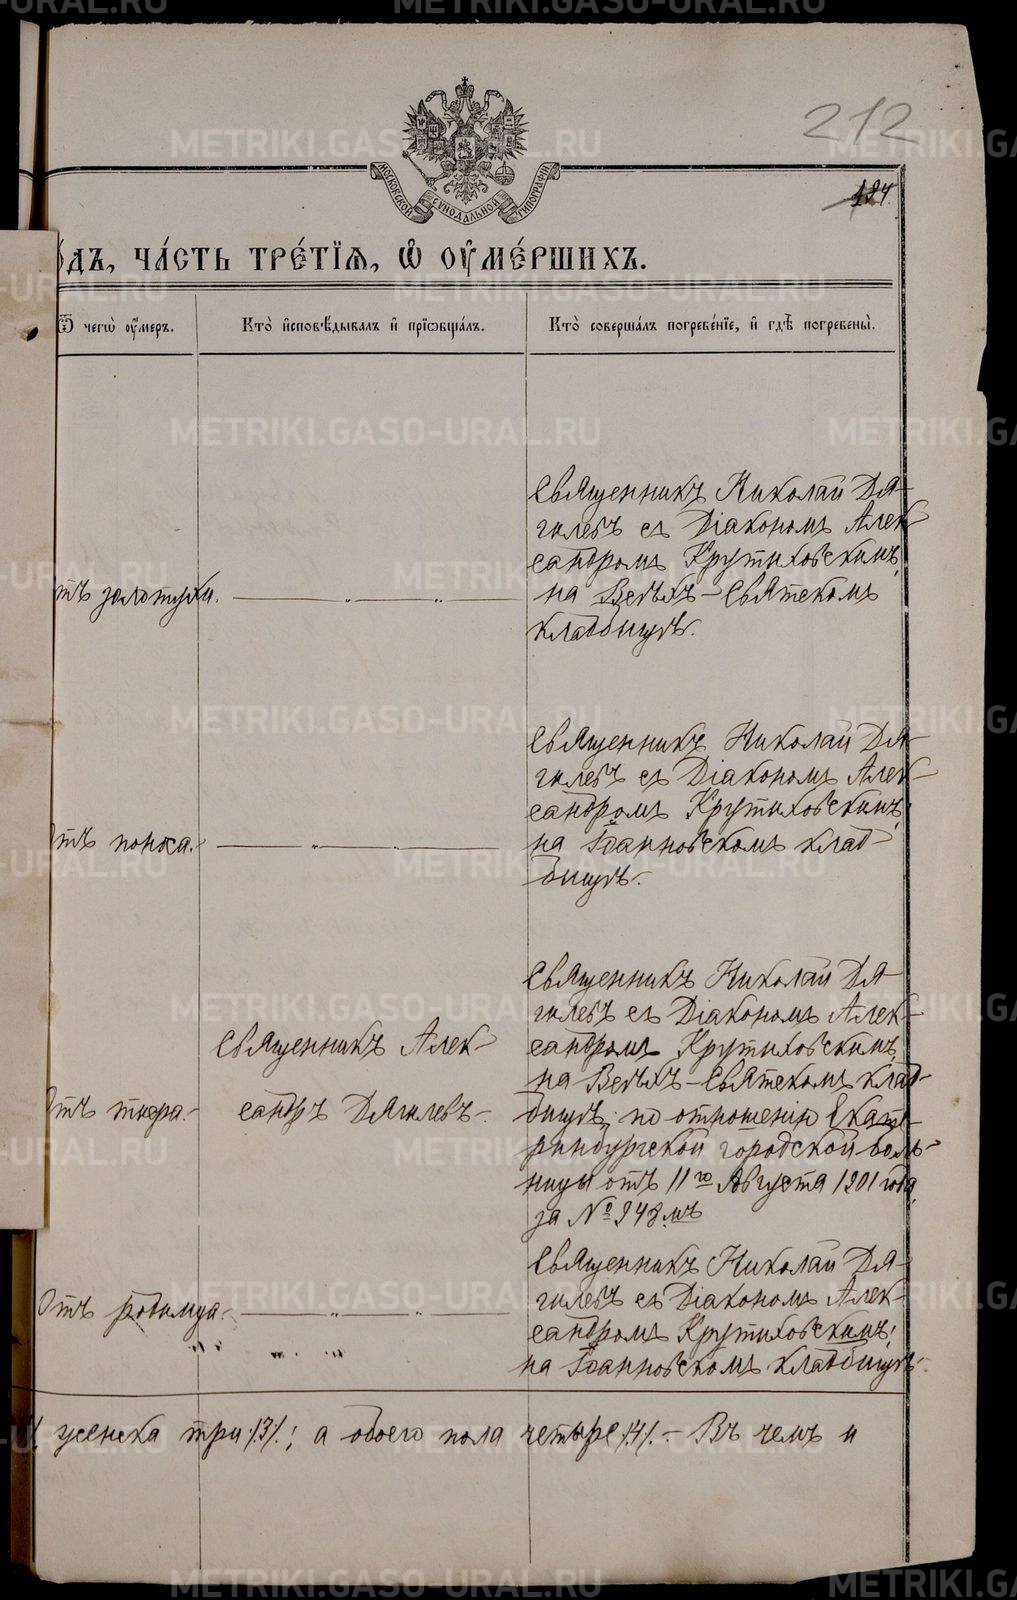 212
184.
МОСКОВСКОЙ СѴНОДАЛЬНОЙ ТИПОГРАФІИ
о́дъ, ча́сть тре́тїѧ, ѡ҆ ᲂу҆ме́ршихъ.
Ѿ чегѡ̀ ᲂу҆́меръ.
Кто̀ и҆сповѣ́дывалъ и҆ прїѡбща́лъ.
Кто̀ соверша́лъ погребе́нїе, и҆ гдѣ̀ погребены̀.
Священникъ Николай Дя-
гилевъ съ Діакономъ Алек-
сандромъ Крутиховскимъ,
тъ золотухи. — „ — „ — на Всѣхъ-Святскомъ
кладбищѣ.
Священникъ Николай Дя-
гилевъ съ Діакономъ Алек-
сандромъ Крутиховскимъ,
Отъ поноса. — „ — „ — на Іоанновскомъ клад-
бищѣ.
Отъ тифа.
Священникъ Алек-
сандръ Дягилевъ.
Священникъ Николай Дя-
гилевъ съ Діакономъ Алек-
сандромъ Крутиховскимъ,
на Всѣхъ-Святскомъ клад-
бищѣ, по отношенію Екате-
ринбургской городской боль-
ницы отъ 11го Августа 1901 года,
за № 948.мъ
Священникъ Николай Дя-
Отъ родимца. — „ — „ — гилевъ съ Діакономъ Алек-
сандромъ Крутиховскимъ,
на Іоанновскомъ кладбищѣ.
женска три /3/.; а обоего пола четыре /4/. – Въ чемъ и
METRIKI.GASO-URAL.RU